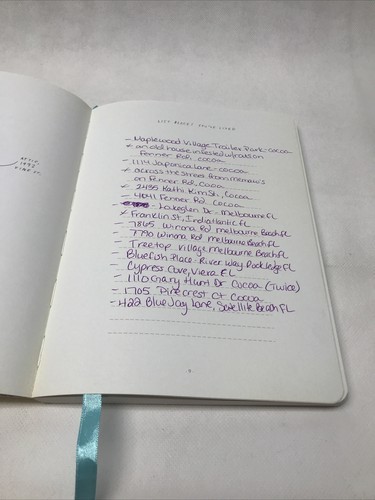 LIST PLACES YOU'VE LIVED
- Maplewood Village Trailer Park - cocoa
* an old house infested w/ rats on
Fenner Rd, cocoa
- 1114 Japonica Lane - cocoa
* across the street from memaw's
on Fenner Rd, Cocoa
- 2435 Kathi Kim St, Cocoa
- 4841 Fenner Rd, Cocoa
- Lakeglen Dr - Melbourne FL
* Franklin St, Indialantic FL
- 7865 Winona Rd Melbourne Beach FL
- 7790 Winona Rd Melbourne Beach FL
- Treetop Village Melbourne Beach FL
- Bluefish Place - River Way Rockledge FL
- Cypress Cove, Viera FL
- 1110 Gary Hunt Dr Cocoa (Twice)
- 1705 Pinecrest Ct Cocoa
- 422 Blue Jay Lane, Satellite Beach FL